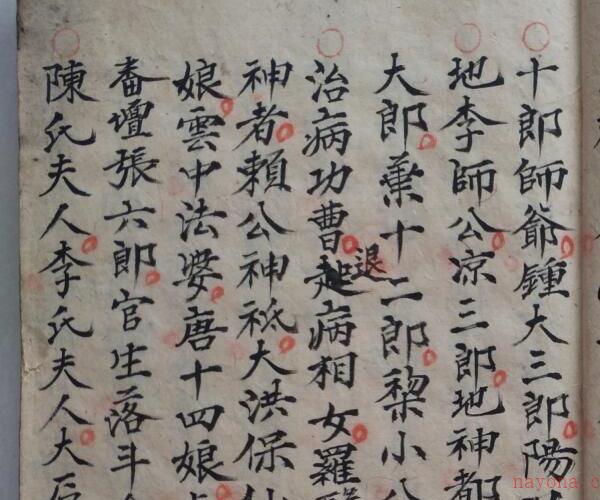 十郎師爺鍾大三郎陽
地李師公凉三郎地神都
大郎葉十二郎黎小八
治病功曹起退病相女羅
神者賴公神祇大洪保
娘雲中法婆唐十四娘
畨壇張六郎官生落斗
陳氏夫人李氏夫人大后
nayona.c